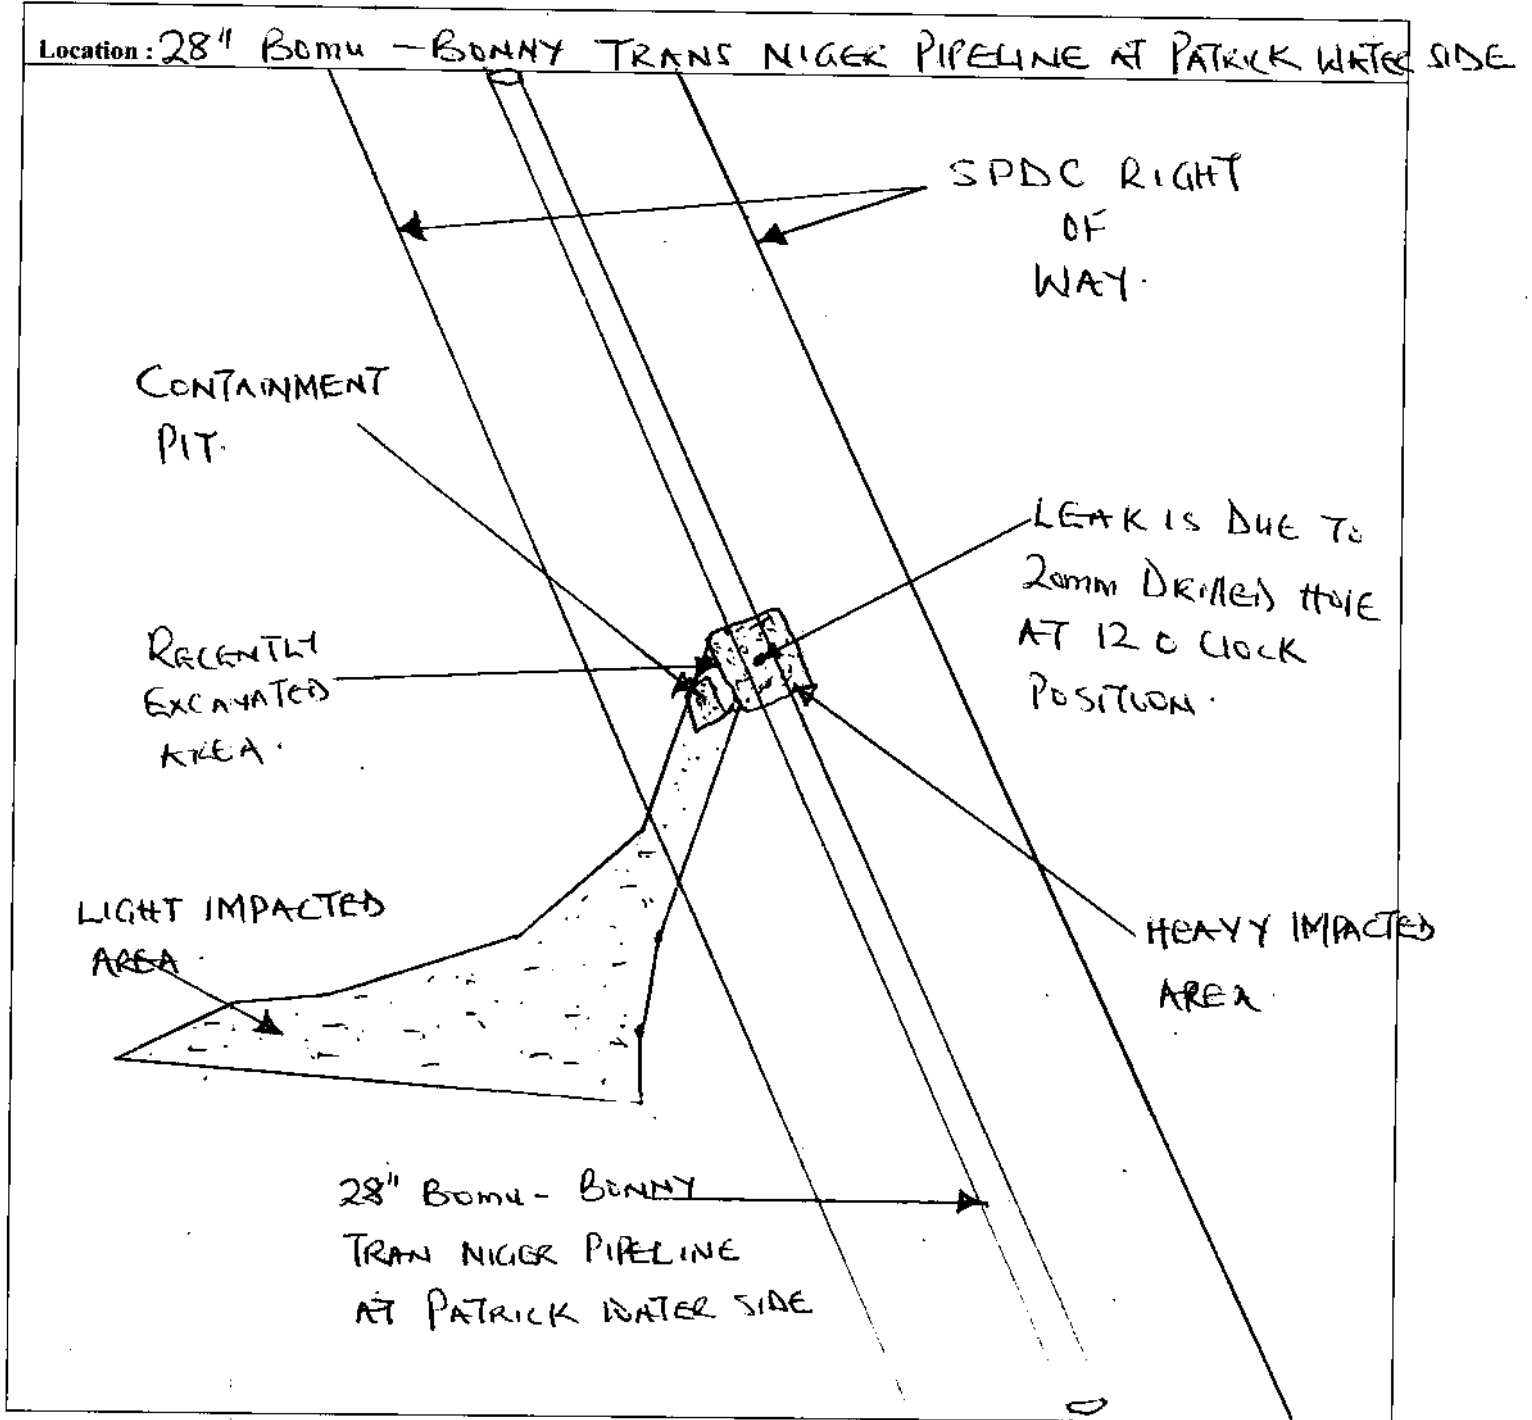 Location : 28" BOMU - BONNY TRANS NIGER PIPELINE AT PATRICK WATER SIDE
SPDC RIGHT
OF
WAY.
CONTAINMENT
PIT.
LEAK IS DUE TO
20mm DRILLED HOLE
AT 12 O CLOCK
POSITION.
RECENTLY
EXCAVATED
AREA.
LIGHT IMPACTED
AREA
HEAVY IMPACTED
AREA.
28" BOMU - BONNY
TRAN NIGER PIPELINE
AT PATRICK WATER SIDE